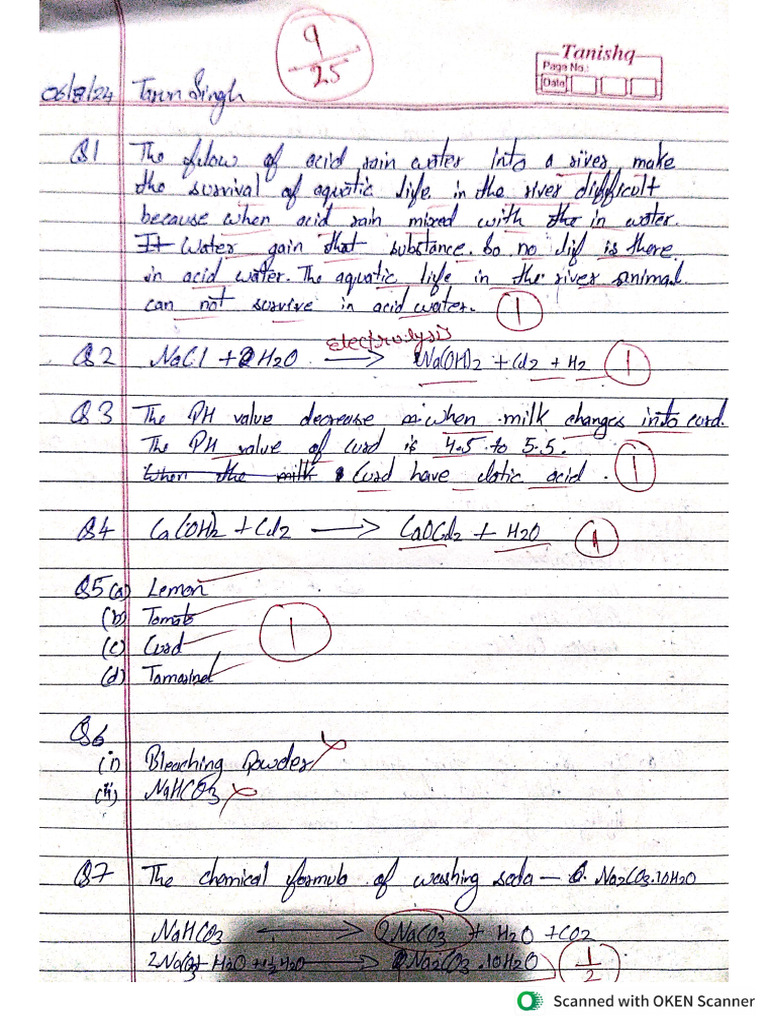 9/25
Tanishq
Page No.:
Date
06/8/24 Tarun Singh
Q1 The folow of acid rain water into a rives make
the survival of aquatic life in the river difficult
because when acid rain mixed with the in water.
It Water gain that substance. So no lif is there
in acid water. The aquatic life in the river animal
can not survive in acid water. 1
electrolysis
Q2 NaCl + 2H2O → Na(OH)2 + Cl2 + H2 1
Q3 The PH value decrease when milk changes into curd.
The PH value of curd is 4.5 to 5.5.
When the milk Curd have latic acid. 1
Q4 Ca(OH)2 + Cl2 → CaOCl2 + H2O 1
Q5 (a) Lemon
(b) Tomato
(c) Curd 1
(d) Tamarind
Q6
(i) Bleaching Powder
(ii) NaHCO3
Q7 The chemical formula of washing soda — Na2CO3.10H2O
NaHCO3 → 2NaCO3 + H2O + CO2
→ Na2CO3.10H2O 1/2
Scanned with OKEN Scanner